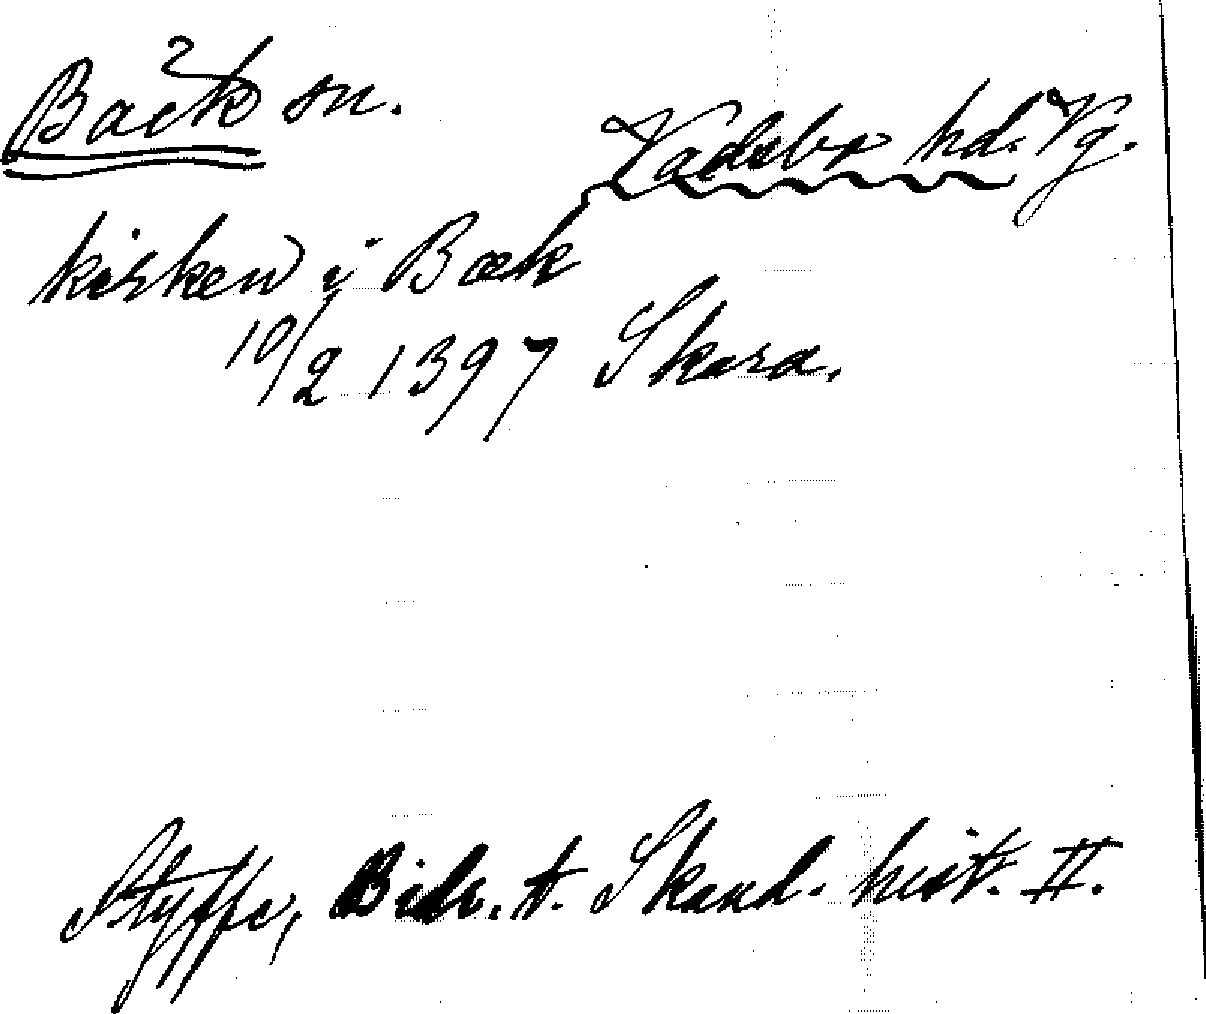 Bäck sn.
Vadsbo hd. Vg.
kirken j Bæk
10/2 1397 Skara.
Styffe, Bidr. t. Skand. hist. II.